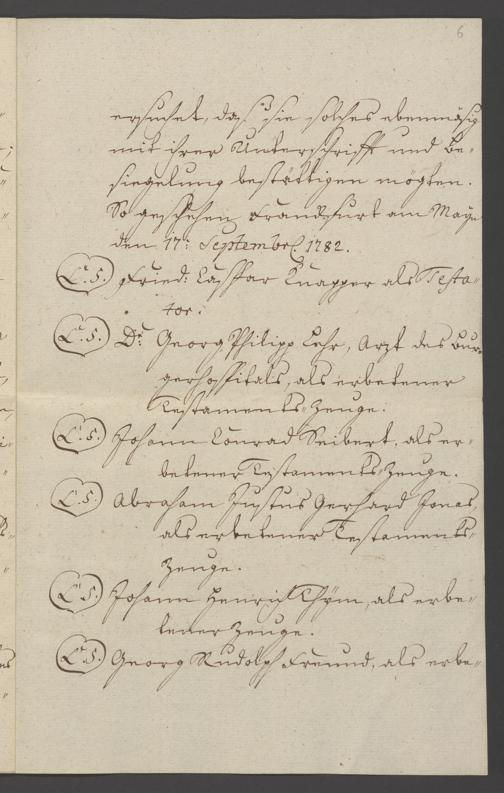 6
ersuchet, daß sie solches ebenmäsig
mit ihrer Unterschrifft und Be-
siegelung bestättigen mögten.
So geschehen Franckfurt am Mayn
den 17.t Septembr. 1782.
L.S. Fried: Casspar Knapper als Testa-
tor.
L.S. Dr. Georg Philipp Lehr, Arzt des Bur-
gerhospitals, als erbetener
Testaments-Zeuge.
L.S. Johann Conrad Seibert, als er-
betener Testaments-Zeuge.
L.S. Abraham Justus Gerhard Jonas,
als erbetener Testaments-
Zeuge.
L.S. Johann Henrich Thÿm, als erbe-
tener Zeuge.
L.S. Georg Rudolph Freund, als erbe-